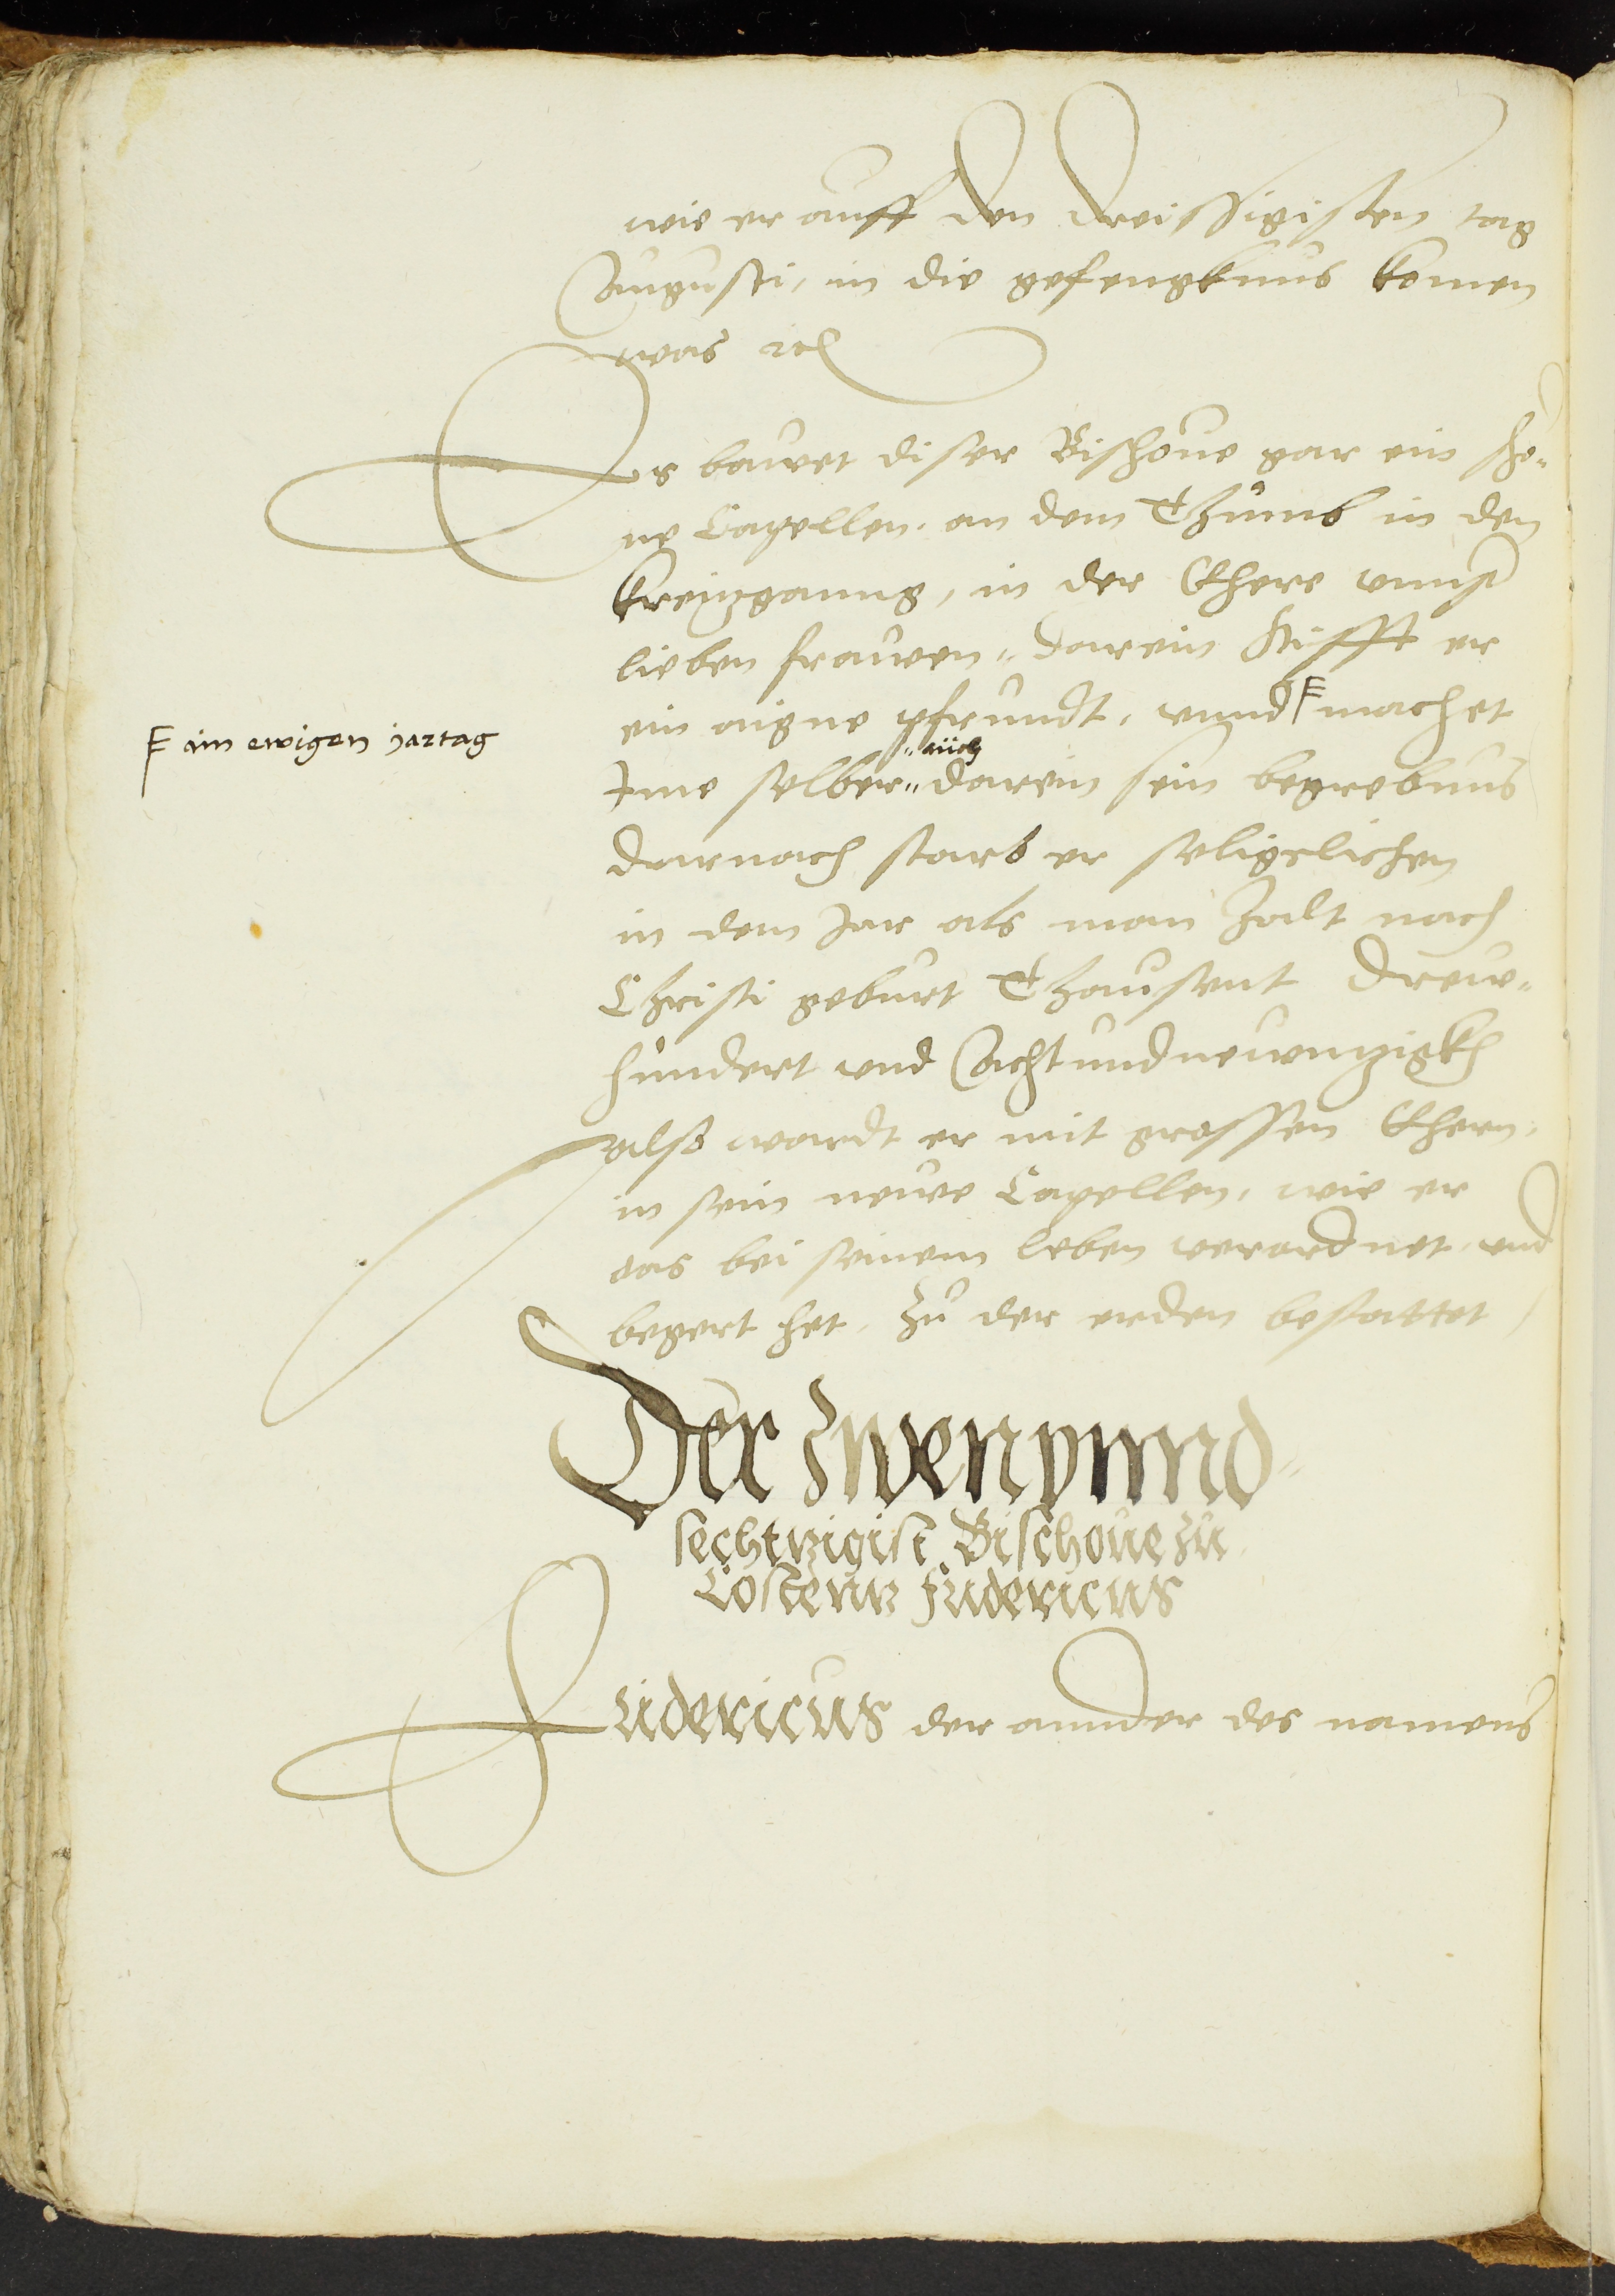 wie er auff den dreissigisten tag
Augusti, in die gefengknus komen
was ꝛc
Es bauet diser Bischoue gar ein scho„
ne Capellen, an dem Thumb in den
Kreuzganng, in der Ehere unnser
lieben frauen„ darein stifft er
ein aigne pfrundt, unnd machet
F ain ewigen jartag
Ime selber„ darein sein begrebnus
„auch
darnach starb er seligelichen
in dem Jar als man zalt nach
Christi geburt Thausent dreu„
hundert und Achtundneunzigkh
also wardt er mit grossen Ehern,
in sein neue Capellen, wie er
das bei seinem leben verordnet, und
begert het, zu der erden bestattet
Der Zwenunnd„
sechtzigist Bischoue zu
Costenz Fridericus
Fridericus der annder des namens